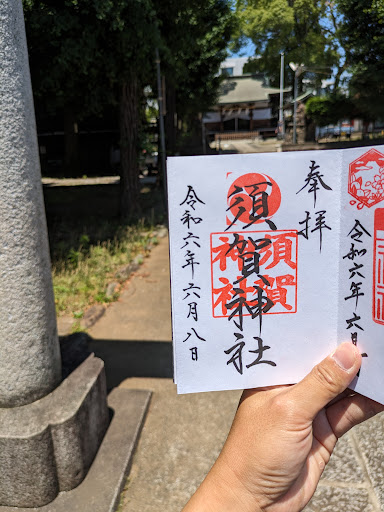 奉拝
須賀神社
須賀
神社
令和六年六月八日
令和六年六月